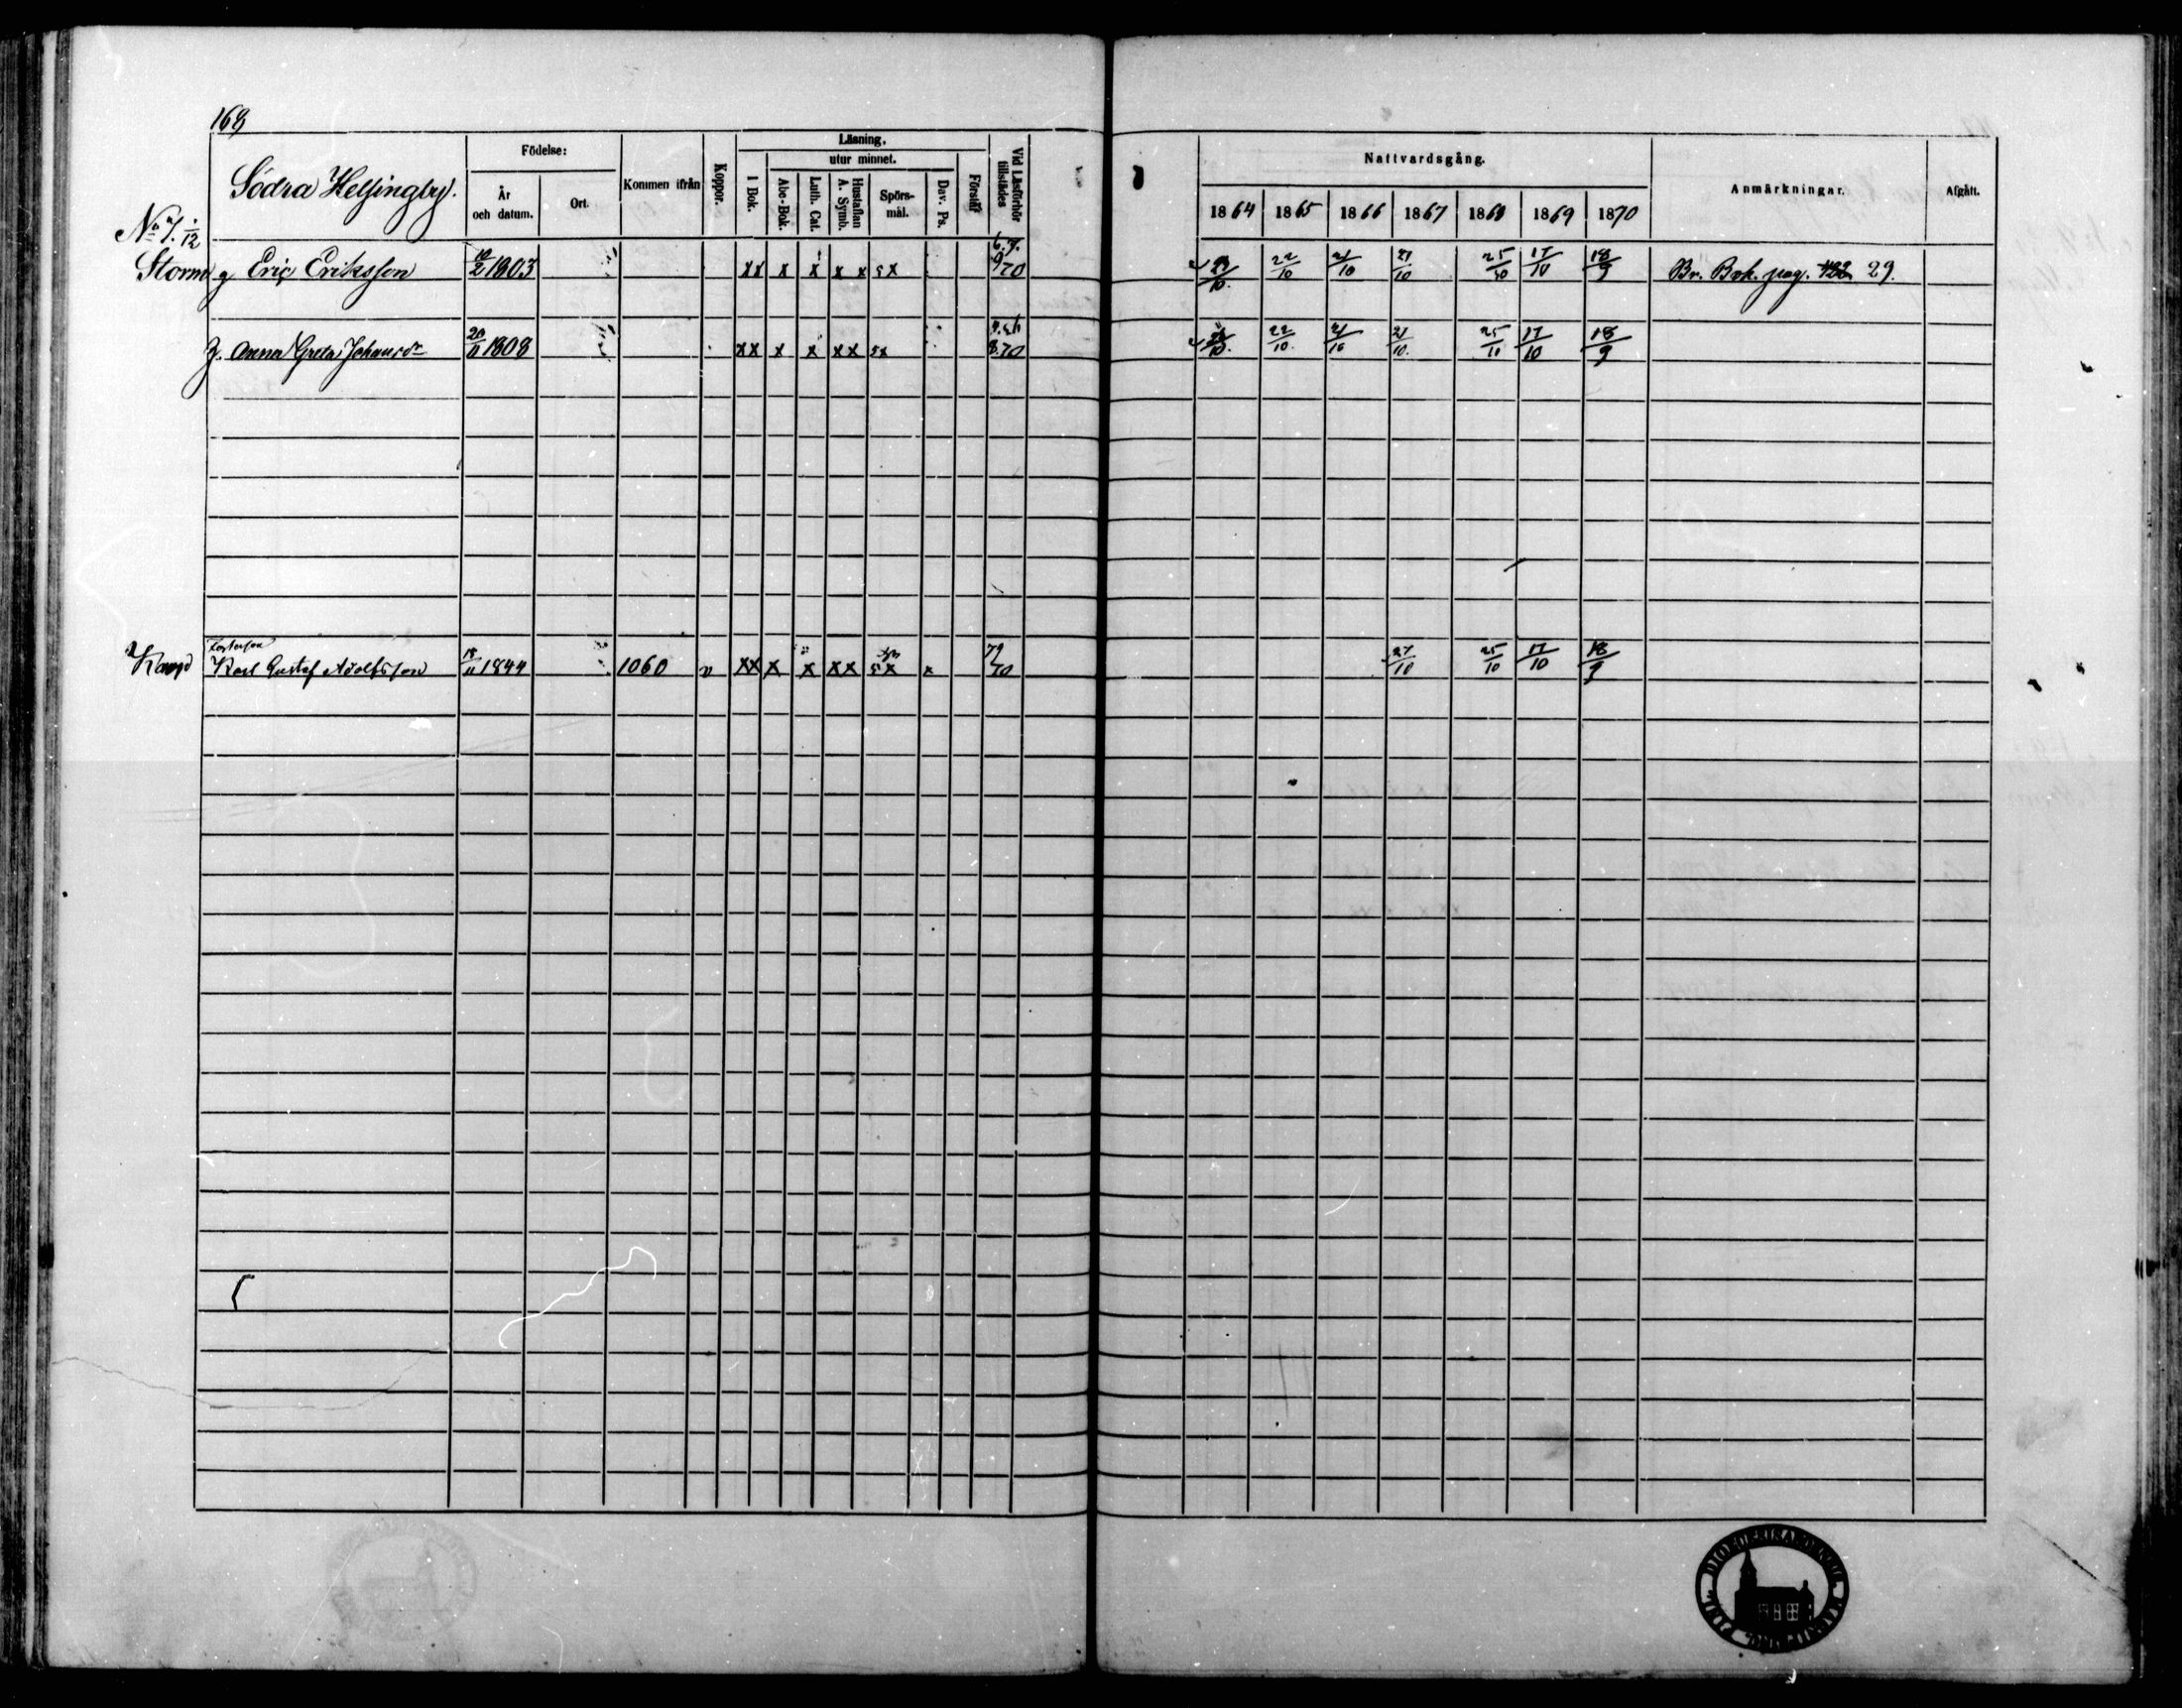 168
Södra Helsingby.
Födelse:
År och datum.
Ort.
Kommen ifrån
Koppor.
Läsning,
utur minnet.
I Bok.
Abc-Bok.
Luth. Cat.
Hustaflan A. Symb.
Spörs-mål.
Dav. Ps.
Förstår
Vid Läsförhör tillstädes
Nattvardsgång.
1864 1865 1866 1867 1868 1869 1870
Anmärkningar.
Afgått.
No 7. 1/12
Storm g Eric Eriksson 10/2 1803 xx x x x x sx 70 22/10 21/10 21/10 25/10 17/10 18/9 Br. Bok. pag. 29.
h. Anna Greta Johansdr 20/11 1808 xx x x xx sx 70 22/10 21/10 21/10. 25/10 17/10 18/9
Fosterson
Karl Gustaf Adolfsson 18/11 1844 1060 v xx x x xx sx x 70 27/10 25/10 17/10 18/9